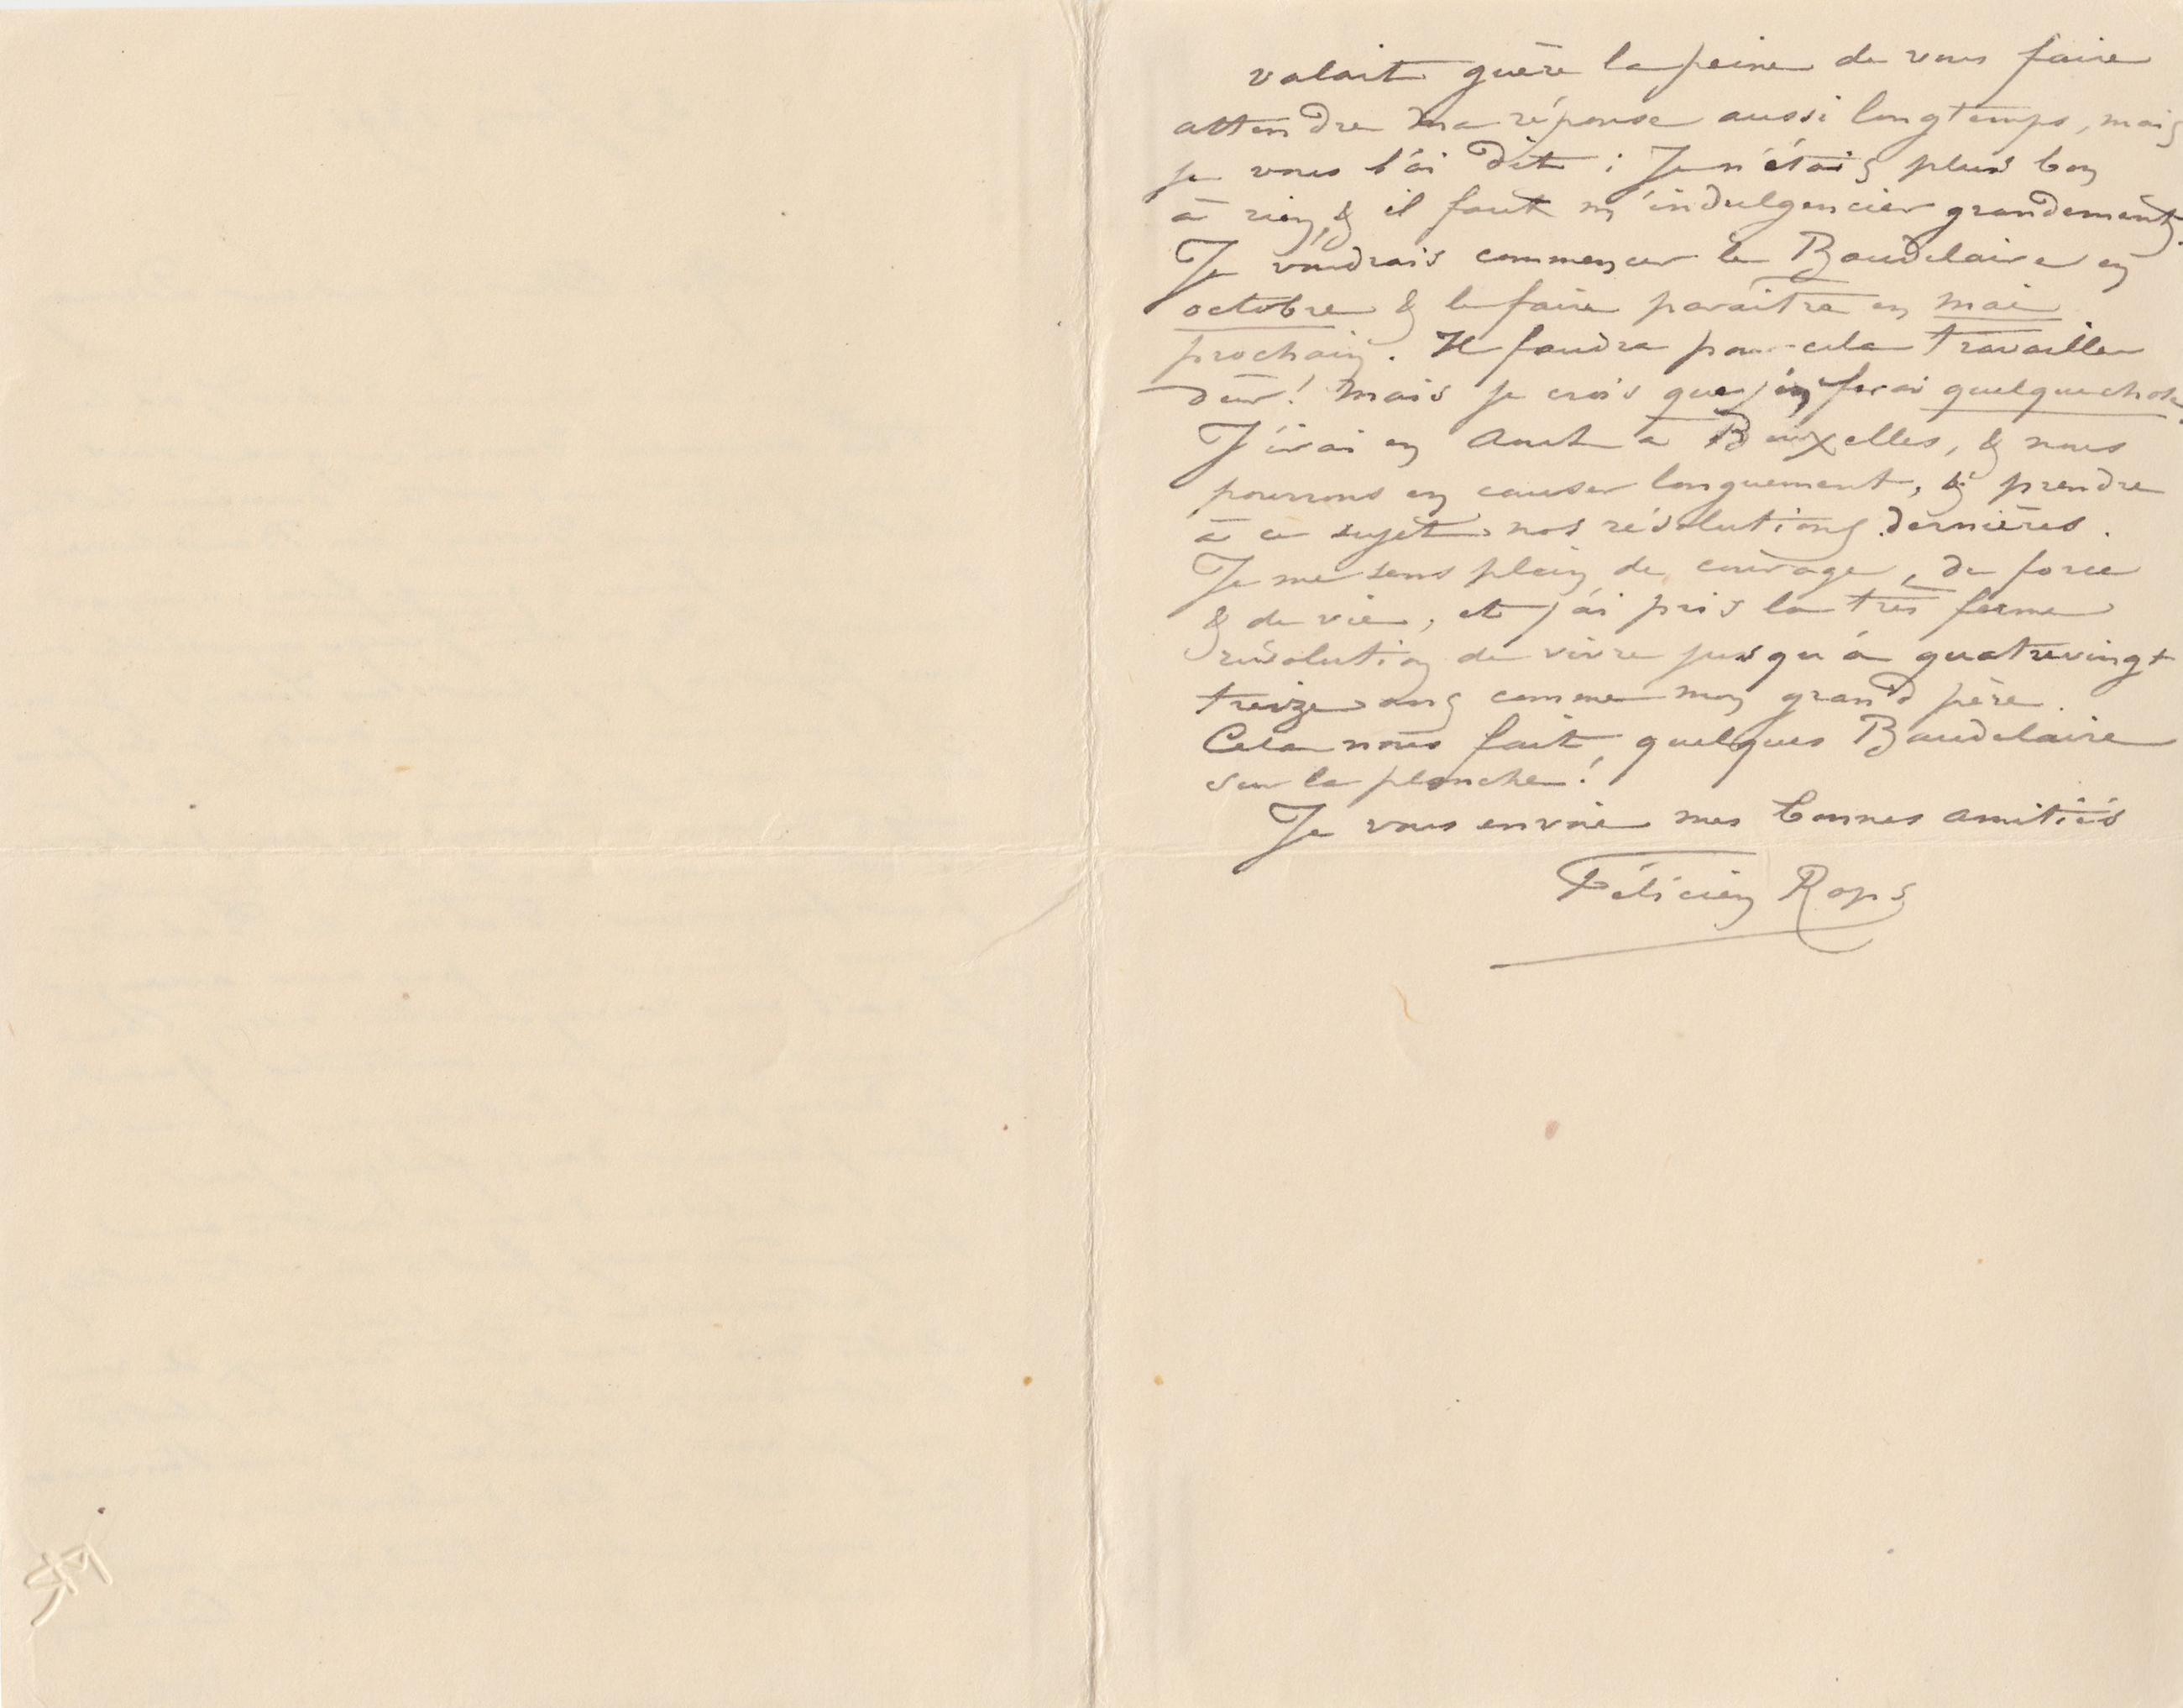 valait guère la peine de vous faire
attendre ma réponse aussi longtemps, mais
je vous l'ai dit : Je n'étais plus bon
à rien, & il faut m'indulgencier grandement.
Je voudrais commencer le Baudelaire en
octobre & le faire paraître en mai
prochain. Il faudra pour cela travailler
dur! Mais je crois que j'en ferai quelquechose.
J'irai en Aout à Bruxelles, & nous
pourrons en causer longuement, & prendre
à ce sujet nos résolutions dernières.
Je me sens plein de courage, de force
& de vie, et j'ai pris la très ferme
résolution de vivre jusqu'à quatrevingt
treize ans comme mon grand père.
Cela nous fait quelques Baudelaire
sur la planche!
Je vous envoie mes bonnes amitiés
Félicien Rops